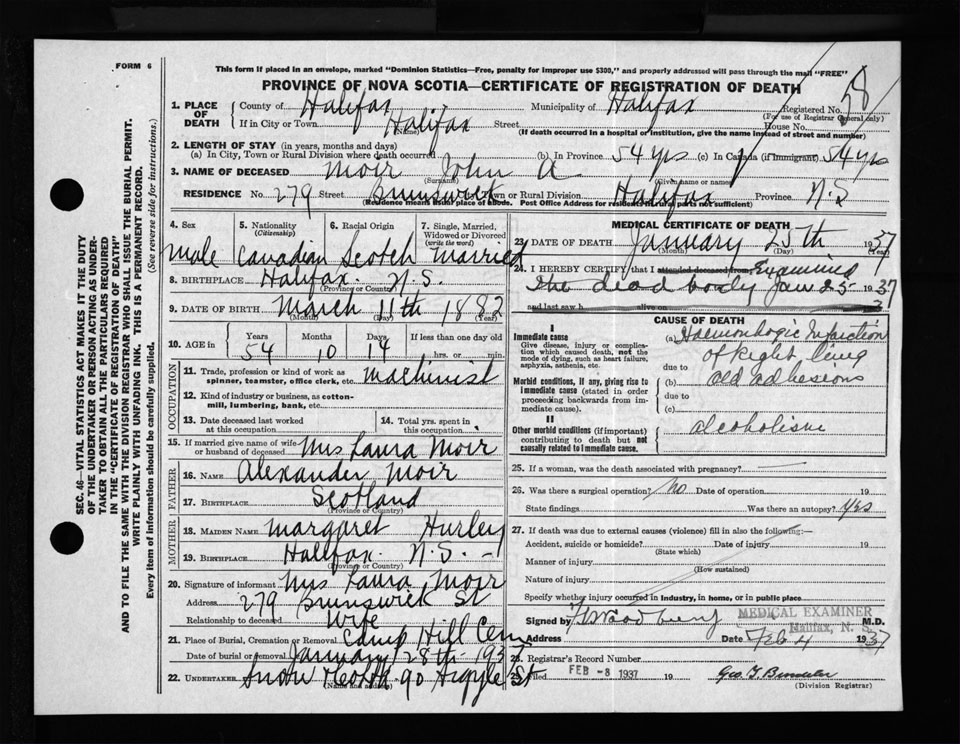 FORM 6
This form if placed in an envelope, marked "Dominion Statistics—Free, penalty for improper use $300," and properly addressed will pass through the mail "FREE"
PROVINCE OF NOVA SCOTIA—CERTIFICATE OF REGISTRATION OF DEATH
58
1. PLACE OF DEATH County of Halifax Municipality of Halifax Registered No.
(For use of Registrar General only)
If in City or Town Halifax Street House No.
(Name) (If death occurred in a hospital or institution, give the name instead of street and number)
2. LENGTH OF STAY (in years, months and days)
(a) In City, Town or Rural Division where death occurred (b) In Province 54 yrs (c) In Canada (if immigrant) 54 yrs
3. NAME OF DECEASED Moir John A
(Surname) (Given name or names)
RESIDENCE No. 279 Street Brunswick Town or Rural Division Halifax Province N.S
(Residence means usual place of abode. Post Office Address for residents in rural parts not sufficient)
4. Sex 5. Nationality (Citizenship) 6. Racial Origin 7. Single, Married, Widowed or Divorced (write the word)
Male Canadian Scotch Married
8. BIRTHPLACE Halifax N.S.
(Province or Country)
9. DATE OF BIRTH March 11th 1882
(Month) (Day) (Year)
10. AGE Years Months Days If less than one day old
54 10 14 hrs. or min.
OCCUPATION
11. Trade, profession or kind of work as spinner, teamster, office clerk, etc. Machinist
12. Kind of industry or business, as cotton-mill, lumbering, bank, etc.
13. Date deceased last worked at this occupation 14. Total yrs. spent in this occupation
15. If married give name of wife or husband of deceased Mrs Laura Moir
FATHER
16. NAME Alexander Moir
17. BIRTHPLACE Scotland
(Province or Country)
MOTHER
18. MAIDEN NAME Margaret Hurley
19. BIRTHPLACE Halifax. N.S.
(Province or Country)
20. Signature of informant Mrs Laura Moir
Address 279 Brunswick St
Relationship to deceased Wife
21. Place of Burial, Cremation or Removal Camp Hill Cem
Date of burial or removal January 28th 1937
22. UNDERTAKER Snow 90 Argyle St
(Name and address)
MEDICAL CERTIFICATE OF DEATH
23. DATE OF DEATH January 25th 1937
(Month) (Day)
24. I HEREBY CERTIFY that I attended deceased from Examined
the dead body Jan 25 1937
and last saw h alive on
CAUSE OF DEATH
I
Immediate cause
Give disease, injury or complication which caused death, not the mode of dying, such as heart failure, asphyxia, asthenia, etc.
(a) Haemorrhagic Infarction
of Right lung
due to
Morbid conditions, if any, giving rise to immediate cause (stated in order proceeding backwards from immediate cause).
(b) Old adhesions
due to
(c)
II
Other morbid conditions (if important) contributing to death but not causally related to immediate cause.
alcoholism
25. If a woman, was the death associated with pregnancy?
26. Was there a surgical operation? No Date of operation 19
State findings Was there an autopsy? yes
27. If death was due to external causes (violence) fill in also the following:—
Accident, suicide or homicide? Date of injury 19
(State which)
Manner of injury
(How sustained)
Nature of injury
Specify whether injury occurred in industry, in home, or in public place
Signed Woodbury M.D.
MEDICAL EXAMINER
Halifax, N. S.
Address Date Feb 4 1937
28. Registrar's Record Number
29. Filed FEB -8 1937 19
(Division Registrar)
SEC. 46—VITAL STATISTICS ACT MAKES IT THE DUTY
OF THE UNDERTAKER OR PERSON ACTING AS UNDER-
TAKER TO OBTAIN ALL THE PARTICULARS REQUIRED
IN THE "CERTIFICATE OF REGISTRATION OF DEATH"
AND TO FILE THE SAME WITH THE DIVISION REGISTRAR WHO SHALL ISSUE THE BURIAL PERMIT.
WRITE PLAINLY WITH UNFADING INK. THIS IS A PERMANENT RECORD.
Every item of information should be carefully supplied. (See reverse side for instructions.)